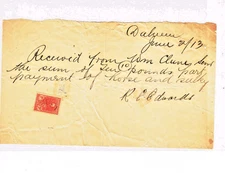 Dalveen
June 2/13
Received from Tom Clune Senr
the sum of Ten (10) pounds part
payment of horse and sulky
R. E. Edwards